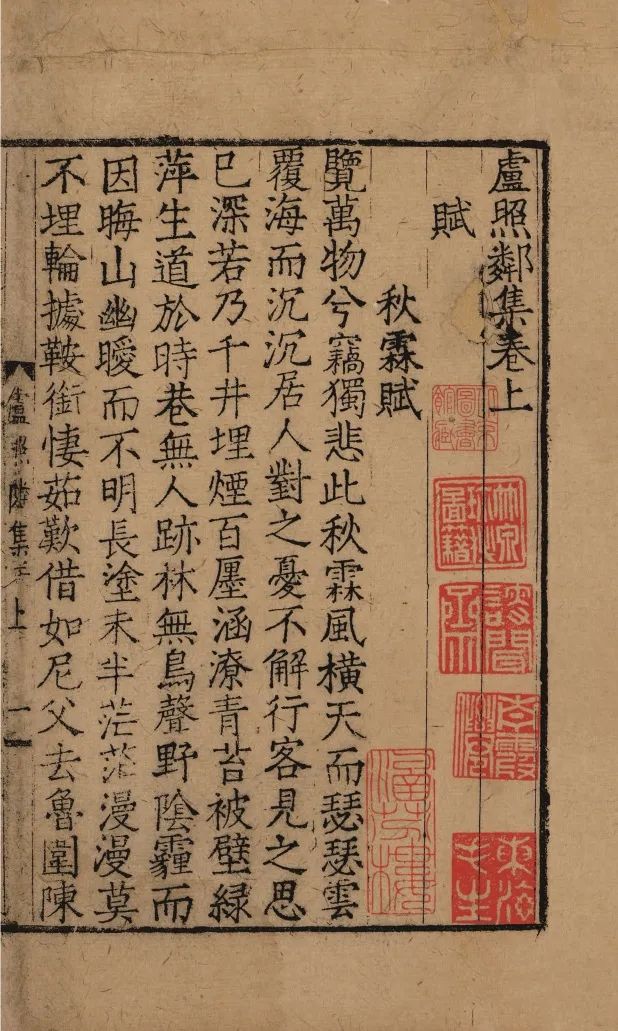 盧照鄰集卷上
賦
秋霖賦
覽萬物兮竊獨悲此秋霖風橫天而瑟瑟雲
覆海而沉沉居人對之憂不解行客見之思
已深若乃千井埋煙百廛涵潦青苔被壁綠
萍生道於時巷無人跡林無鳥聲野陰霾而
因晦山幽曖而不明長塗未半茫茫漫漫莫
不埋輪據鞍銜悽茹歎借如尼父去魯圍陳
盧照鄰集 上 一
涵芬樓
東海